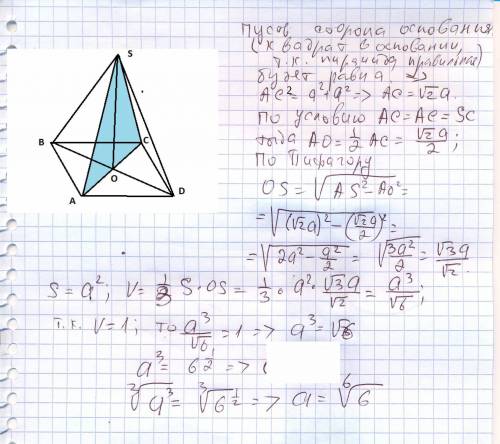 S
B
C
O
A
D
Пусть сторона основания
(квадрат в основании,
т.к. пирамида правильная)
будет равна a.
AC² = a²+a² => AC=√2a.
По условию AC=AC=SC
тогда AO=½ AC= √2a/2;
По Пифагору
OS=√AS²-AO²=
=√(√2a)²-(√2a/2)²=
=√2a²-a²/2=√3a²/2=√3a/√2.
S=a²; V=⅓ S·OS=1/3·a²·√3a/√2=a³/√6;
т.к. V=1; то a³/√6=1 => a³=√6
a³=6^½ =>
∛a³=∛6^½ => a=⁶√6